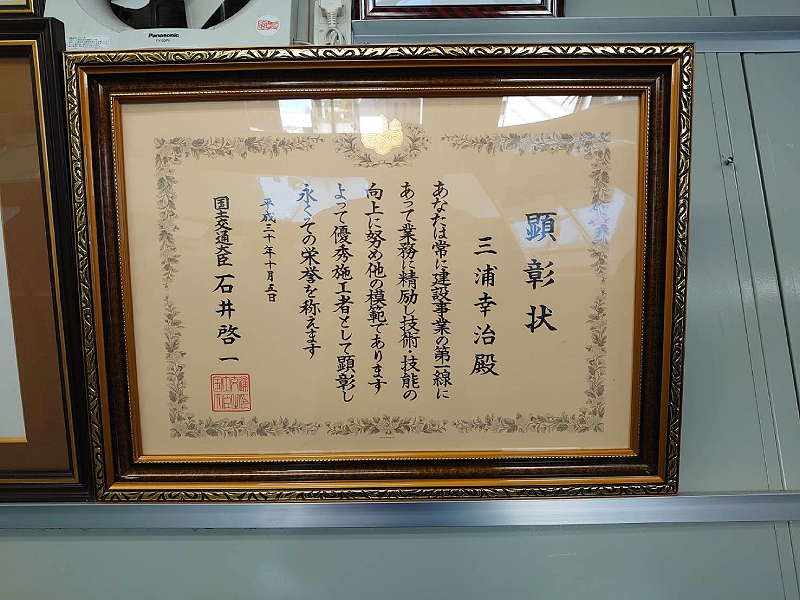 Panasonic
顕彰状
三浦幸治殿
あなたは常に建設事業の第一線に
あって業務に精励し技術・技能の
向上に努め他の模範であります
よって優秀施工者として顕彰し
永くその栄誉を称えます
平成三十年十月五日
国土交通大臣 石井啓一